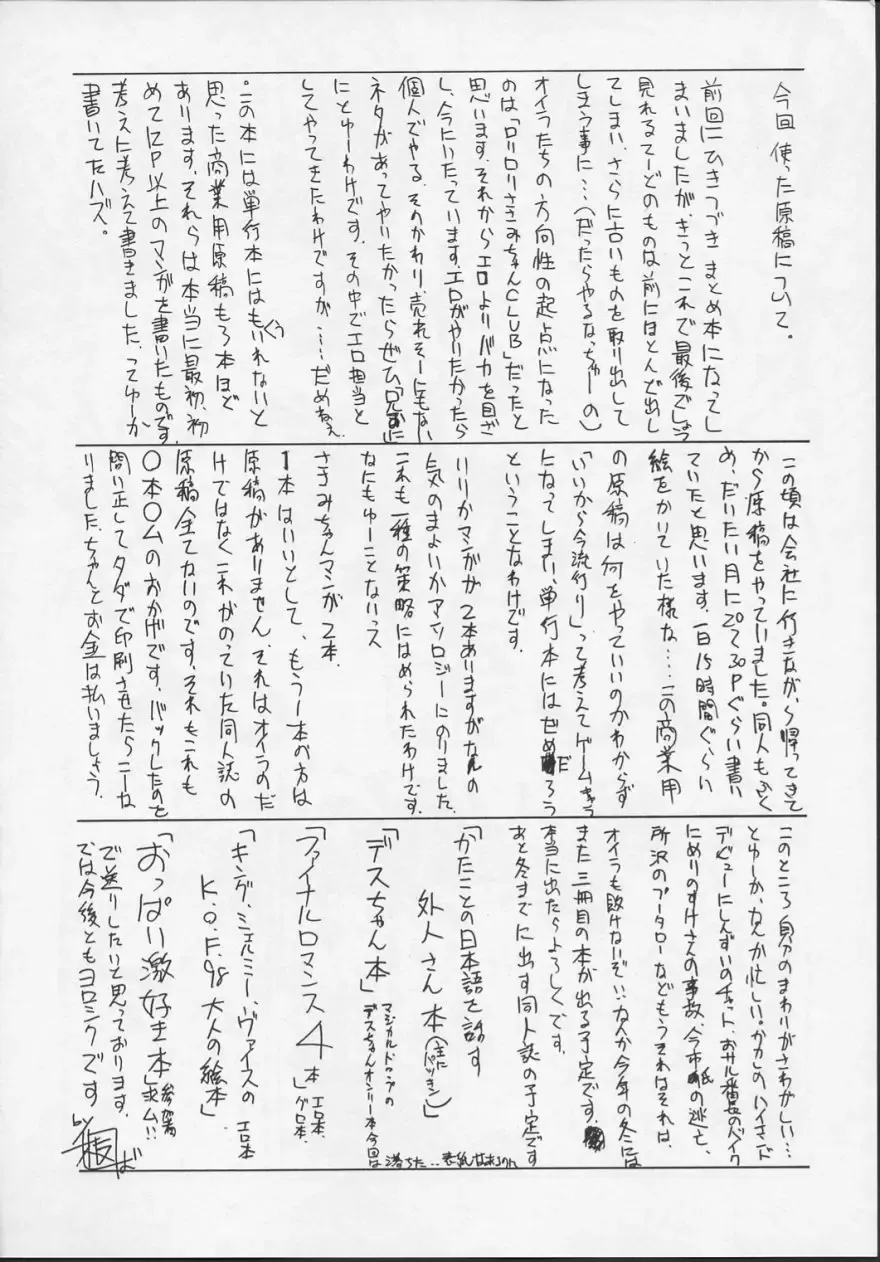 今回使った原稿について。
前回にひきつづきまとめ本になってし
まいましたが、きっとこれで最後でしょう
見れるてーどのものは前にほとんど出し
てしまい、さらに古いものを取り出して
しまう事に…(だったらやるなっちゅーの)
オイラたちの方向性の起点になった
のは「ロリロリさきみちゃんCLUB」だったと
思います。それからエロよりバカを目ざ
し、今にいたっています。エロがやりたかったら
個人でやる、そのかわり、売れそーにもない
ネタがあってやりたかったらぜひ
にとゆーわけです。その中でエロ担当と
してやってきたわけですが……だめねぇ
・この本には単行本にはもいれないと
思った商業用原稿も3本ほど
あります。それらは本当に最初、初
めて12P以上のマンガを書いたものです
考えに考えて書きました、ってゆーか
書いてたハズ。
この頃は会社に行きながら帰ってきて
から原稿をやっていました。同人もふく
め、だいたい月に20〜30Pぐらい書い
ていたと思います。一日15時間ぐらい
絵をかいていた様な…この商業用
の原稿は何をやっていいのかわからず
「いいから今流行り」って考えてゲームキャラ
になってしまい、単行本にはだめだろう
ということなわけです。
リリカマンガが2本ありますがなんの
気のまよいかアンソロジーにのりました。
これも一種の策略にはめられたわけです。
なにもゆーことないっス
さきみちゃんマンガ2本。
1本はいいとして、もう1本の方は
原稿がありません、それはオイラのだ
けではなくこれがのっていた同人誌の
原稿全てないのです。それもこれも
〇本〇ムのおかげです。バックしたのを
問い正してタダで印刷させたらこーな
りました、ちゃんとお金は払いましょう。
このところ自分のまわりがさわがしい…
とゆーか、なんか忙しい。かかしのハイエンド
デビューにしんずいのチャット、おサル番長のバイク
にめりのすけさんの事故、今市の逃亡、
所沢のプータローなどもうそれはそれは、
オイラも敗けないぞ…なんか今年の冬には
また三冊目の本が出る予定です。
本当に出たらよろしくです。
あと冬までに出す同人誌の予定です
「かたことの日本語を話す
外人さん本(主にパツキン)」
「デスちゃん本」マジカルドロップの
デスちゃんオンリー本今回は
落ちた…表紙
「ファイナルロマンス4本」エロ本、グロ本、
「キング、シェルミー、ヴァイスのエロ本
K.O.F.98大人の絵本」
「おっぱい激好き本」参加者求ム!!
で送りしたいと思っております。
では今後ともヨロシクです
by